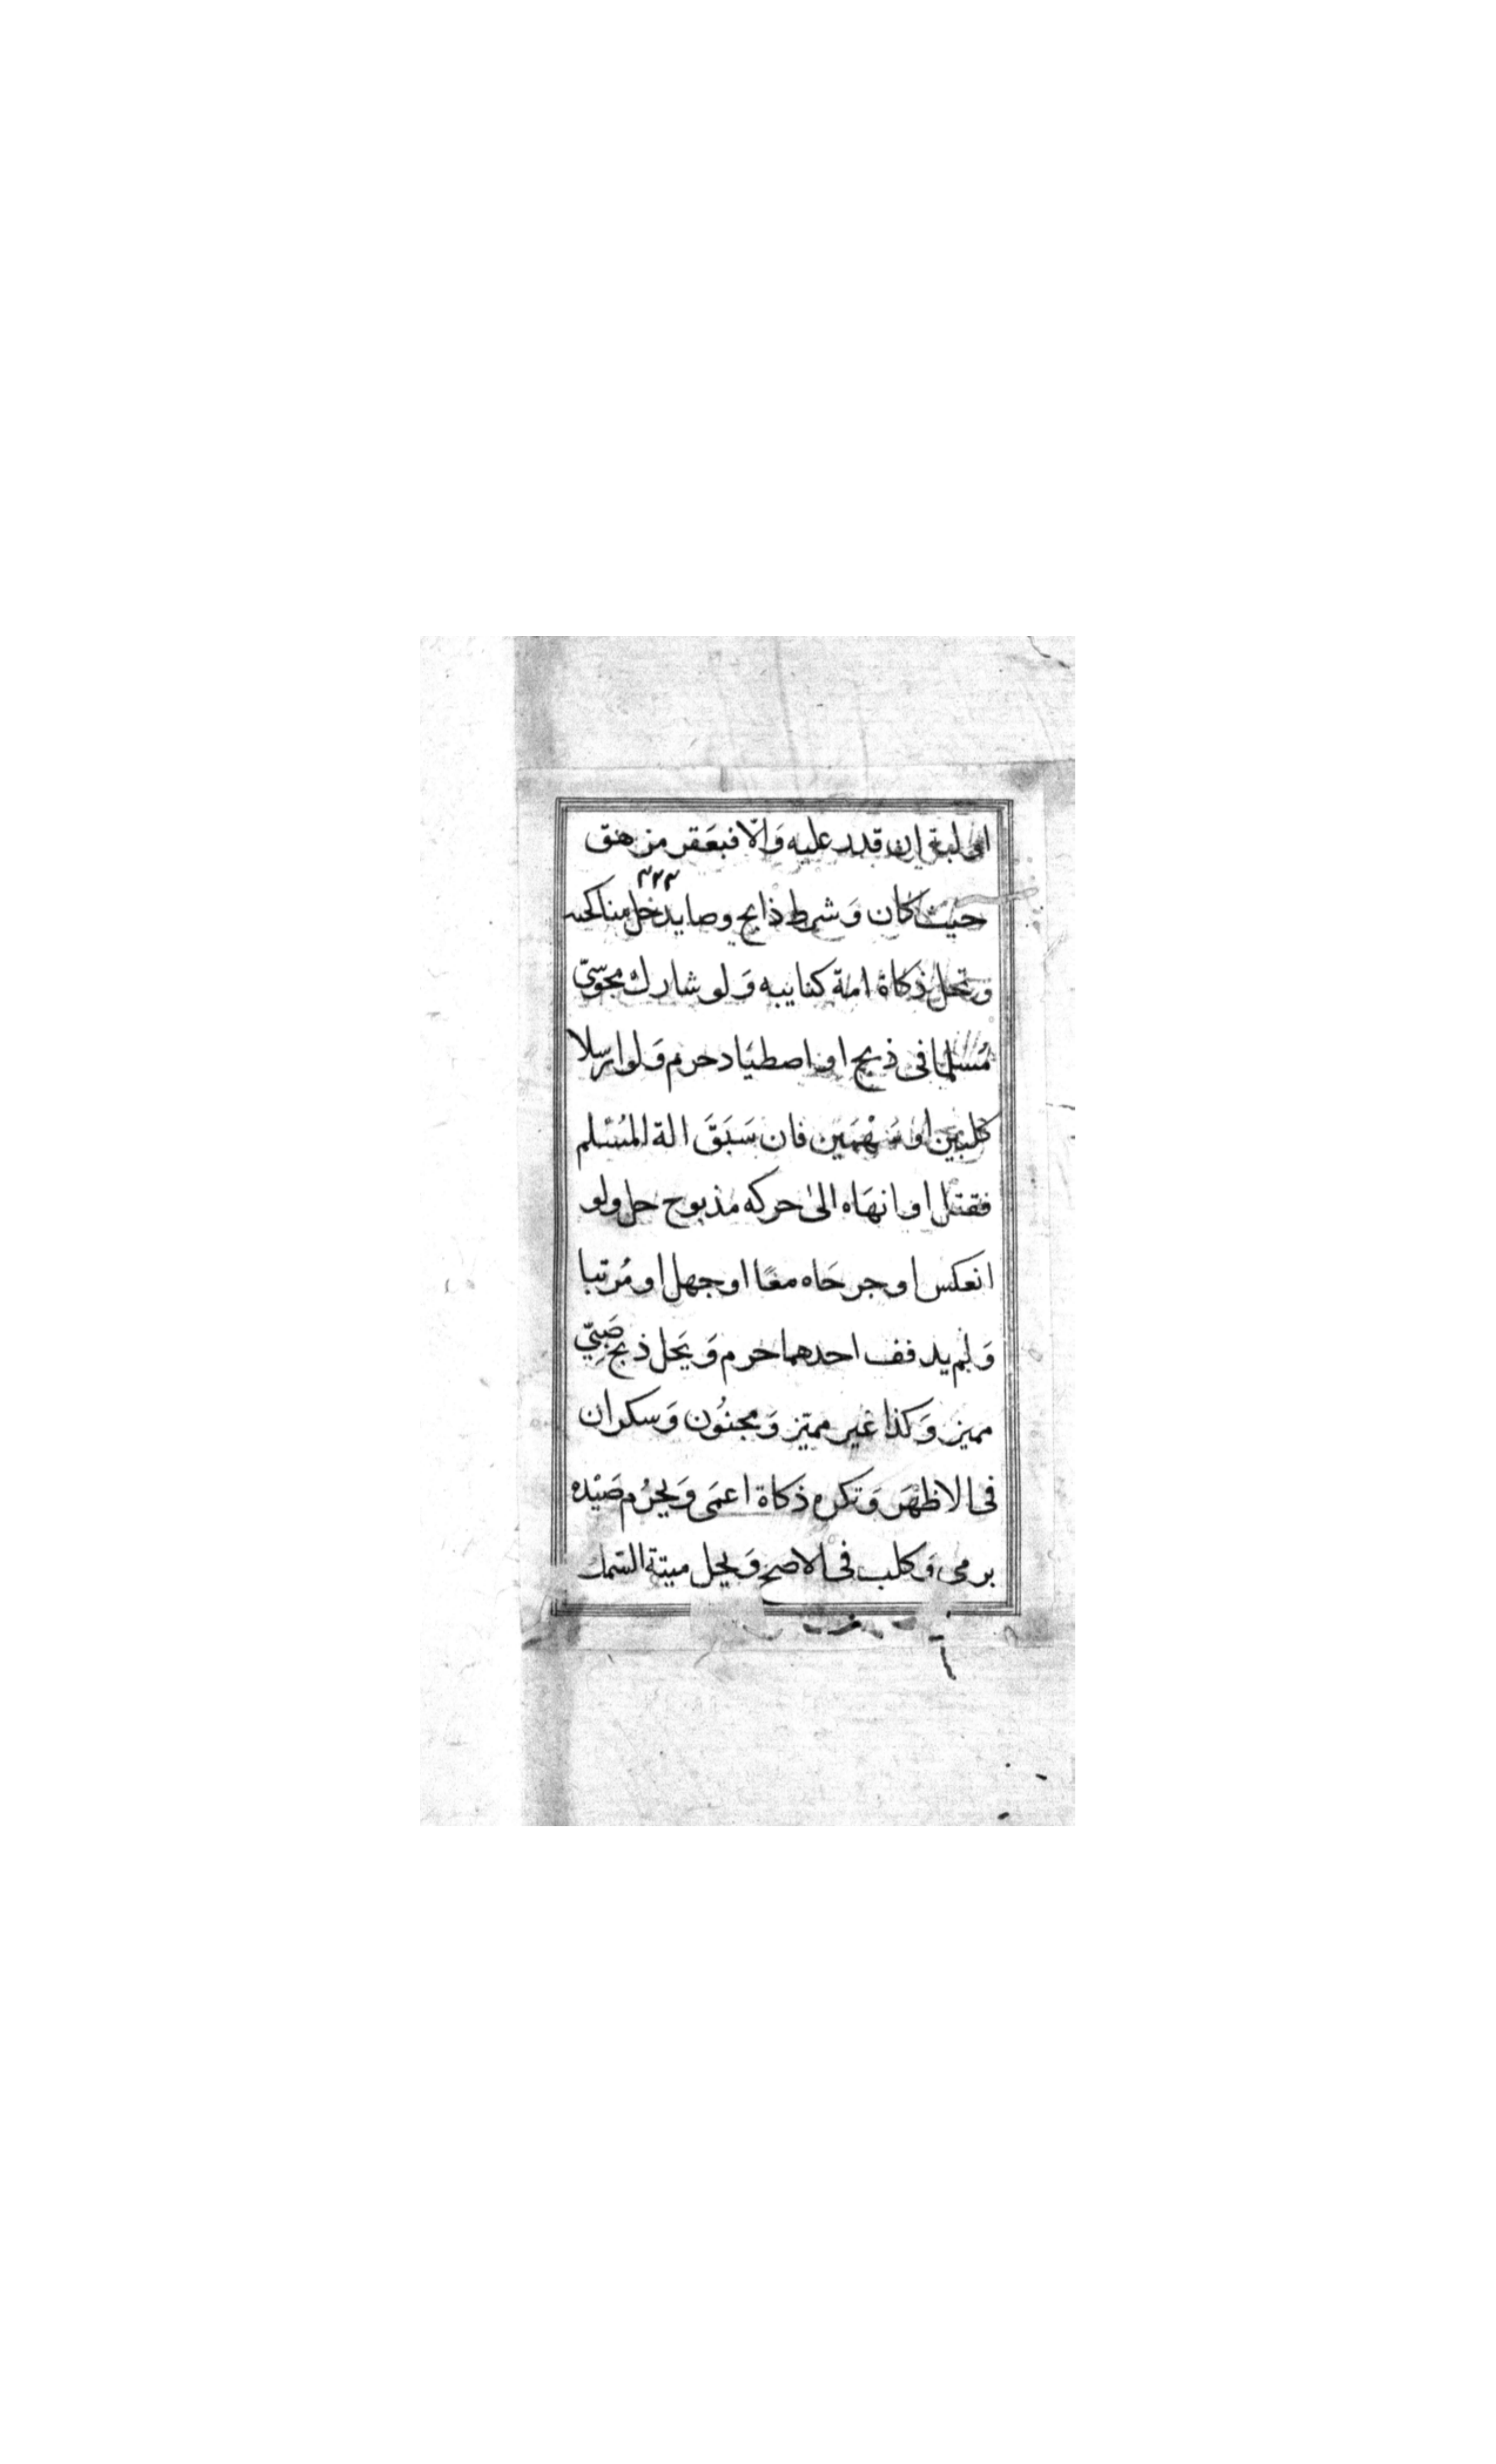 او لبة ان قدر عليه وَالّا فبعَقر مزهق
٣٢٣
حيث كان وَشرط ذابح وصايد حل مناكحته
وتحل ذكاة امة كتابيه وَلو شارك مجوسيّ
مُسلما فى ذبح او اصطيَاد حرم وَلو ارسلا
كلبين او سَهْمَين فان سَبَقَ الة المُسْلم
فقتل او انهَاه الىٰ حركه مذبوح حل ولو
انعكس او جرحَاه معًا او جهل او مُرتبا
وَلم يدفف احدهما حرم وَيَحل ذبح صَبِيّ
مميز وَكذا غير مميّز وَمجنوُن وَسكران
فى الاظهَر وَتكره ذكاة اعمَى وَيحرُم صَيْده
برمى وَكلب فى الاصح وَيحل ميتة السّمك